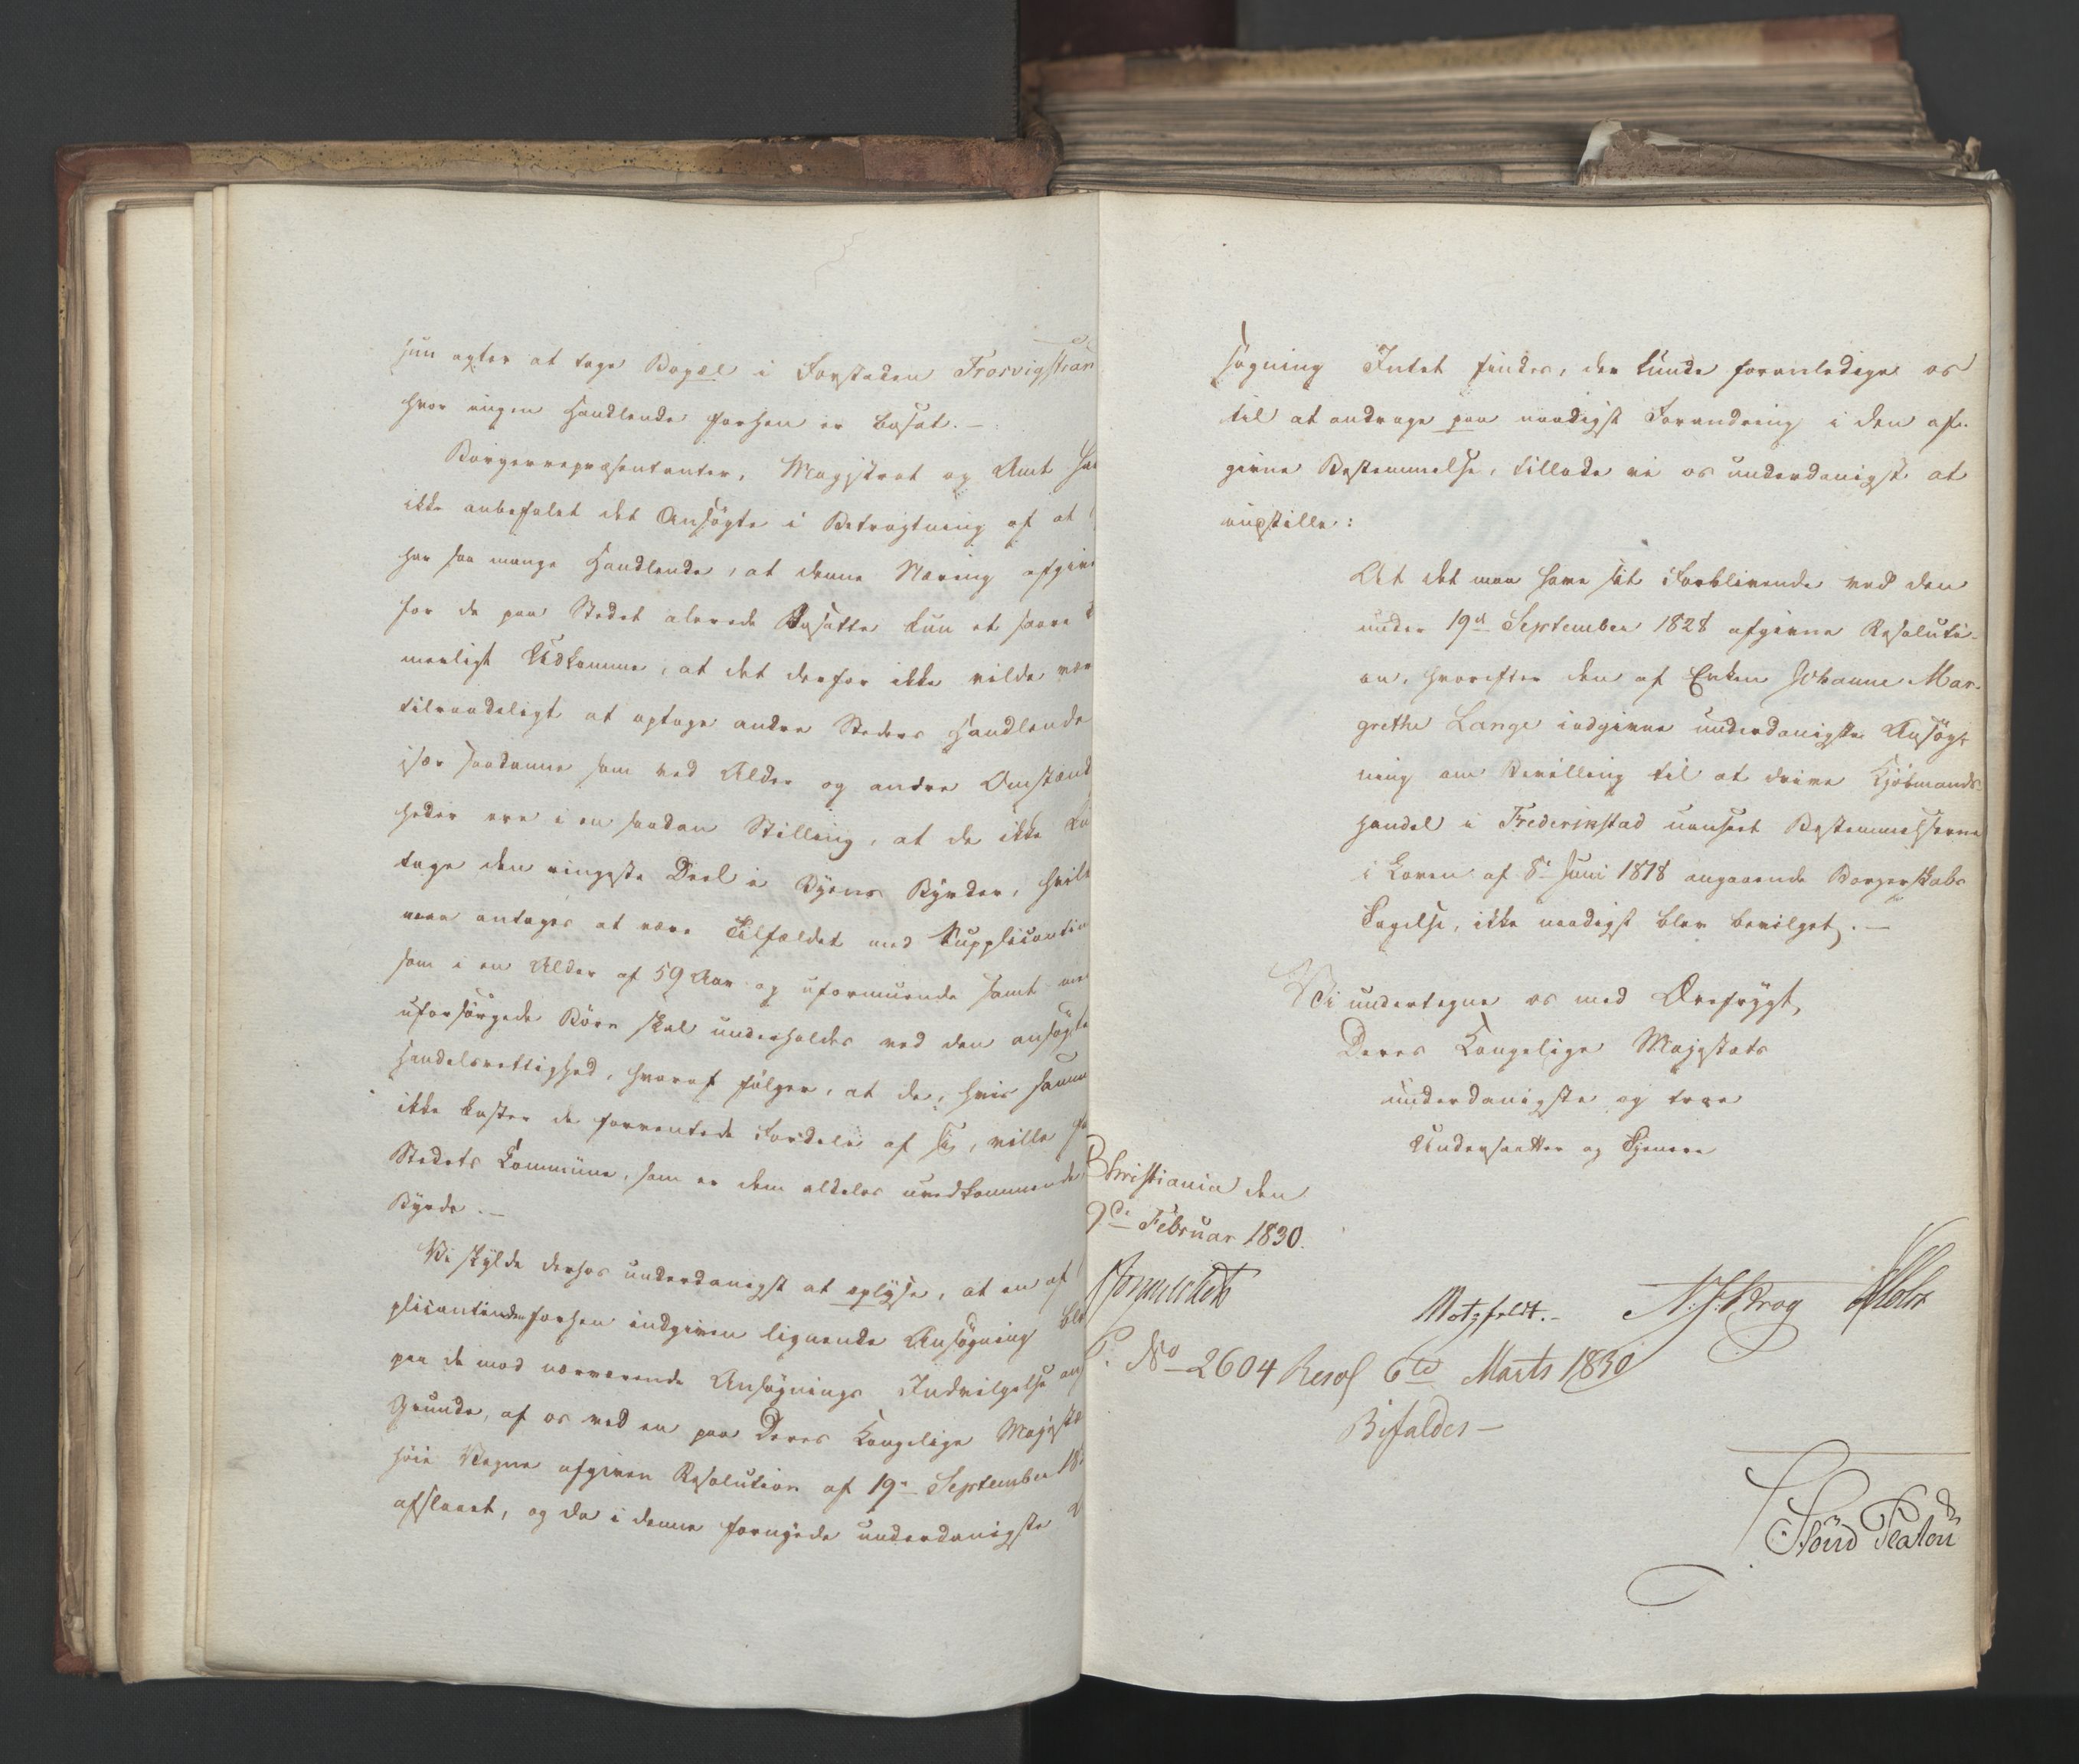 hun agter at tage Bopæl i Forstaden Trosvigstran
hvor ingen Handlende forhen er bosat. –
Borgerrepræsentanter, Magistrat og Amt ha
ikke anbefalet det Ansøgte i Betragtning af at
har saa mange Handlende, at denne Næring afgive
for de paa Stedet alerede Bosatte kun et saare
merligt Udkomme, at det derfor ikke vilde vær
tilraadeligt at optage andre Steders Handlende
især saadanne som ved Alder og andre Omstænd
heder ere i en saadan Stilling, at de ikke ku
tage den ringeste Deel i Byens Byrder, hvilk
maa antages at være Tilfældet med Supplicantin
som i en Alder af 59 Aar og uformuende samt me
uforsørgede Børn skal underholdes ved den ansøgte
Handelsrettighed, hvoraf følger, at de, hvis samme
ikke kaster de forventede Fordele af sig, ville fa
Stedets Commune, som er dem aldeles uvedkommende
Byrde. –
Vi skylde derhos underdanigst at oplyse, at en af
plicantinden forhen indgiven lignende Ansøgning blev
paa de mod nærværende Ansøgnings Indvilgelse anf
Grunde, af os ved en paa Deres Kongelige Majestæ
høie Vegne afgiven Resolution af 19de September 18
afslaaet, og da i denne fornyede underdanigste
søgning Intet findes, der kunde foranledige os
til at andrage paa naadigst Forandring i den af-
givne Bestemmelse, tillade vi os underdanigst at
indstille:
At det maa have sit Forblivende ved den
under 19de September 1828 afgivne Resoluti-
on, hvorefter den af Enken Johanne Mar-
grethe Lange indgivne underdanigste Ansøg-
ning om Bevilling til at drive Kjøbmands-
handel i Frederikstad uanseet Bestemmelserne
i Loven af 8de Juni 1818 angaaende Borgerskabs
Tagelse, ikke naadigst blev bevilget. –
Vi undertegne os med Ærefrygt,
Deres Kongelige Majestæts
underdanigste og troe
Undersaatter og Tjenere
Christiania den
9de Februar 1830.
Motzfeldt. – N. J. Krog Holst
No 2604 Resol 6te Marts 1830
Bifaldes –